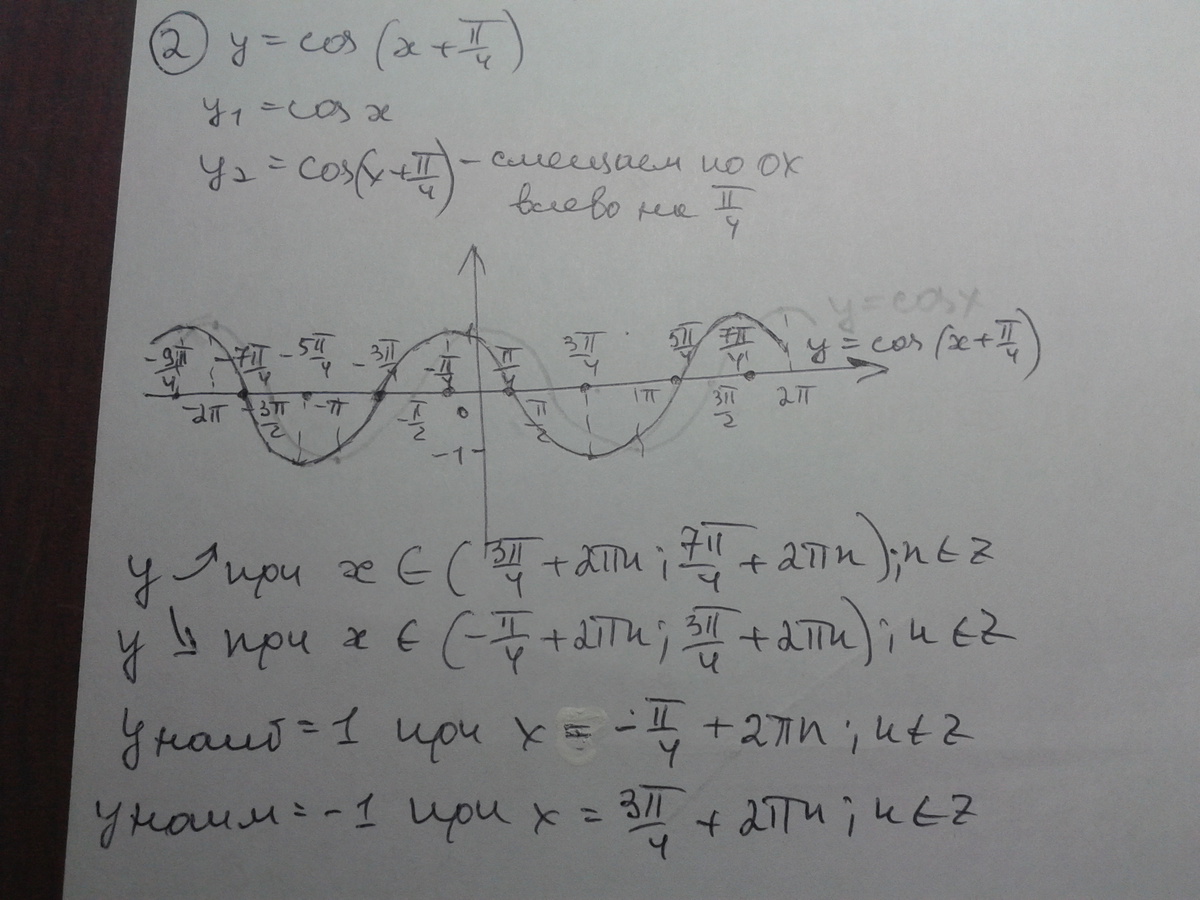 ② y = cos (x + π/4)
y₁ = cos x
y₂ = cos(x + π/4) – смещаем по ox
влево на π/4
y = cos x
y = cos (x + π/4)
-9π/4 -7π/4 -5π/4 -3π/4 -π/4 π/4 3π/4 5π/4 7π/4
-2π -3π/2 -π -π/2 0 π/2 π 3π/2 2π
-1
y ↗ при x ∈ (3π/4 + 2πn ; 7π/4 + 2πn); n ∈ Z
y ↘ при x ∈ (-π/4 + 2πn ; 3π/4 + 2πn); n ∈ Z
y наиб = 1 при x = -π/4 + 2πn ; n ∈ Z
y наим = -1 при x = 3π/4 + 2πn ; n ∈ Z